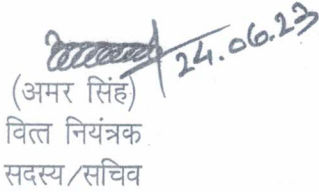 24.06.23
(अमर सिंह)
वित्त नियंत्रक
सदस्य/सचिव